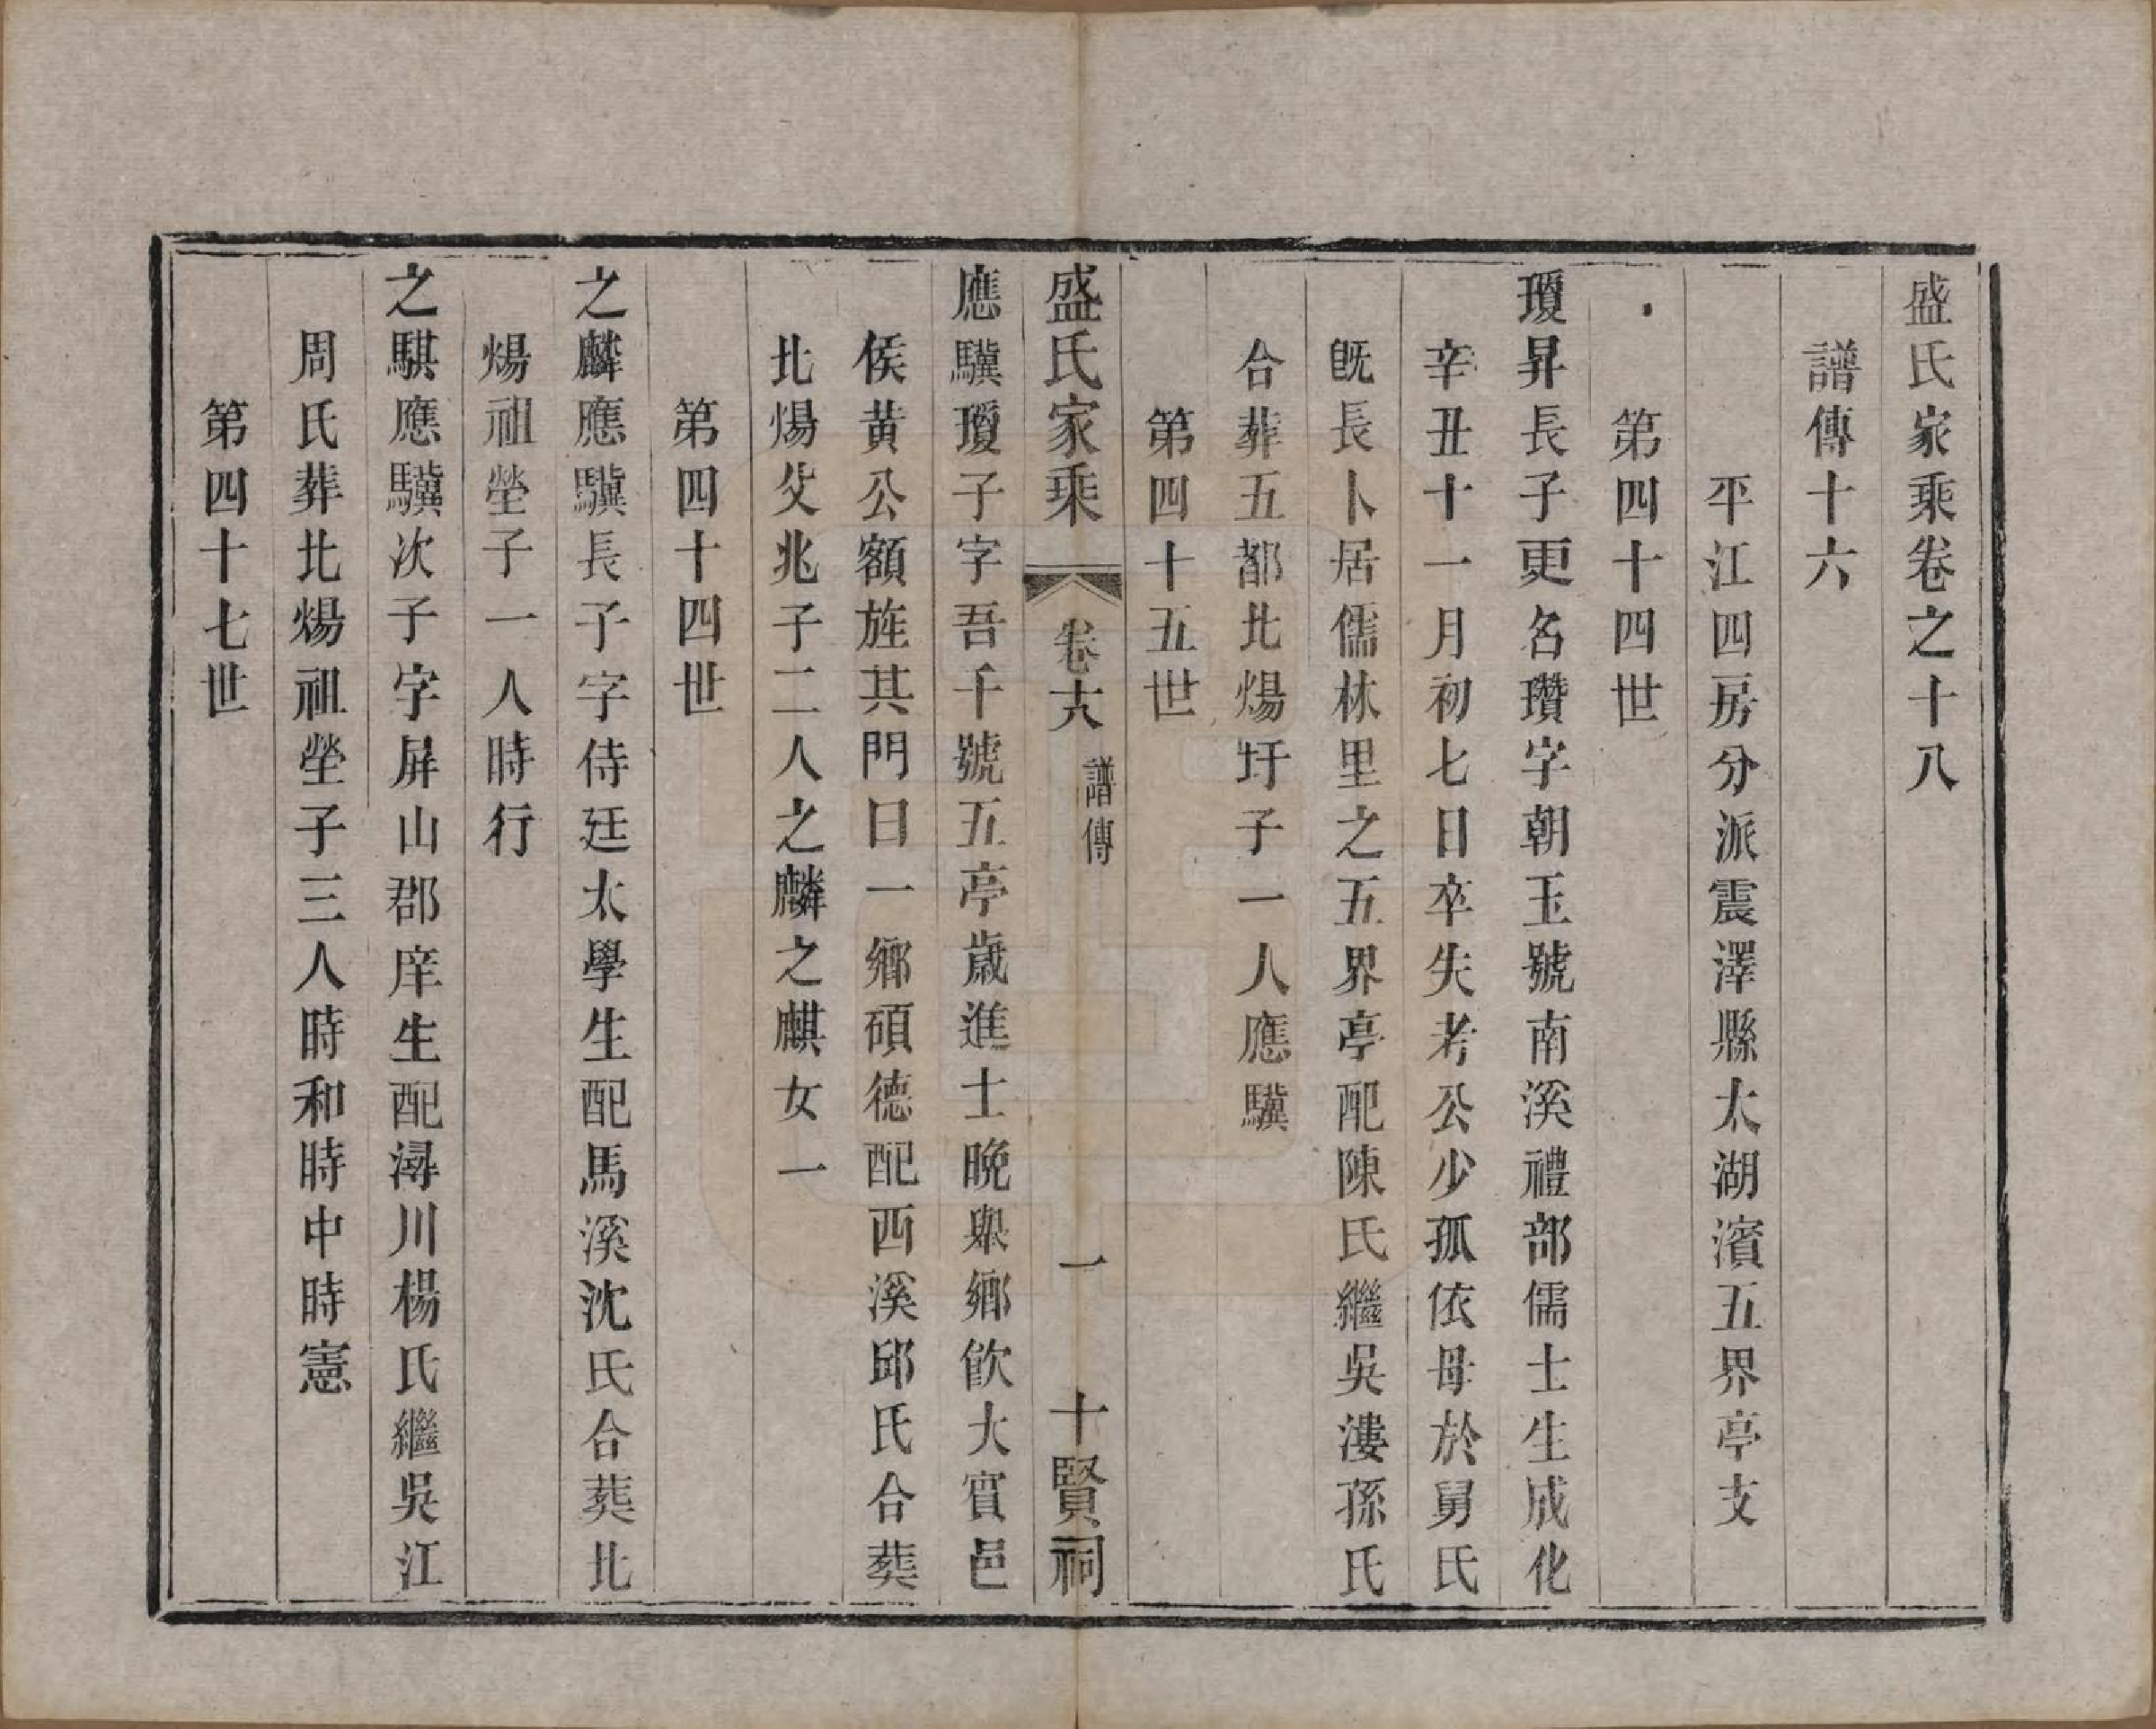 盛氏家乘卷之十八
譜傳十六
平江四房分派震澤縣太湖濱五界亭支
第四十四世
瓊昇長子更名瓚字朝玉號南溪禮部儒士生成化
辛丑十一月初七日卒失考公少孤依母於舅氏
旣長卜居儒林里之五界亭配陳氏繼吳漊孫氏
合葬五都北煬圩子一人應驥
第四十五世
盛氏家乘 卷十八 譜傳 一 十賢祠
應驥瓊子字吾千號五亭歲進士晚舉鄉飲大賓邑
侯黄公額旌其門曰一鄉碩德配西溪邱氏合葬
北煬父兆子二人之麟之麒女一
第四十四世
之麟應驥長子字侍廷太學生配馬溪沈氏合葬北
煬祖塋子一人時行
之騏應驥次子字屏山郡庠生配潯川楊氏繼吳江
周氏葬北煬祖塋子三人時和時中時憲
第四十七世